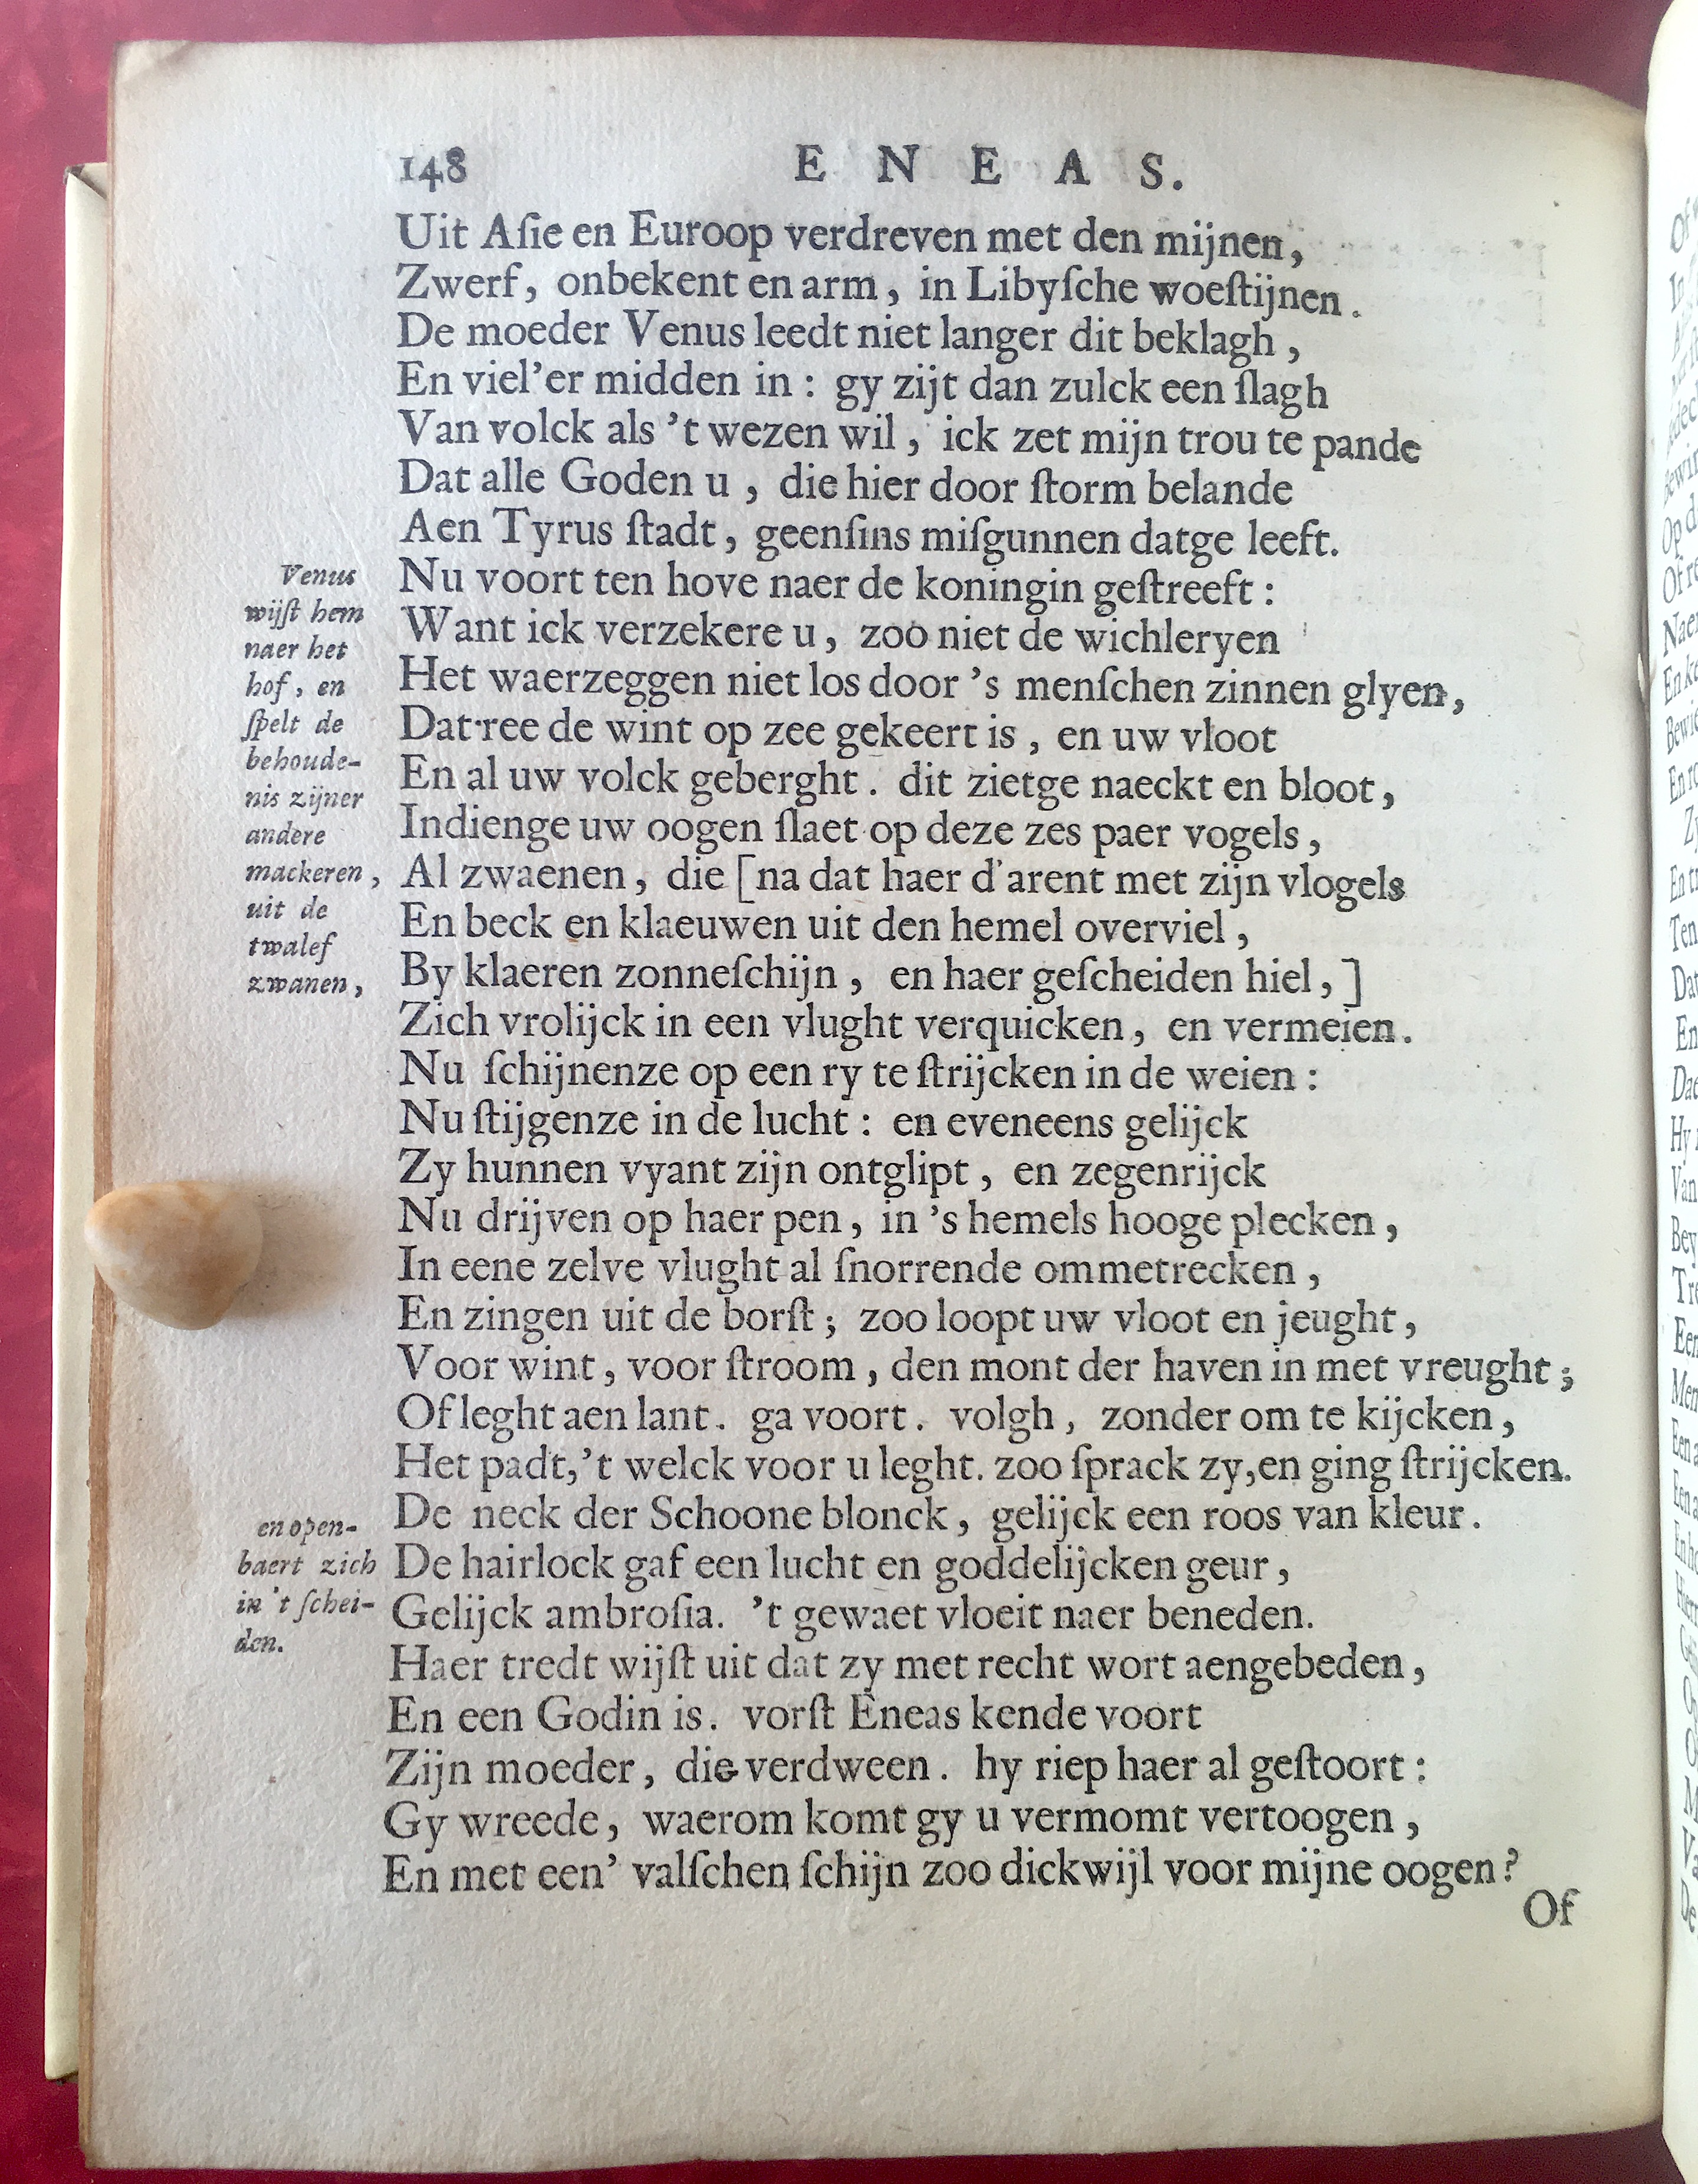 148 E N E A S.
Uit Aſie en Euroop verdreven met den mijnen,
Zwerf, onbekent en arm, in Libyſche woeſtijnen.
De moeder Venus leedt niet langer dit beklagh,
En viel'er midden in: gy zijt dan zulck een ſlagh
Van volck als 't wezen wil, ick zet mijn trou te pande
Dat alle Goden u, die hier door ſtorm belande
Aen Tyrus ſtadt, geenſins miſgunnen datge leeft.
Nu voort ten hove naer de koningin geſtreeft:
Want ick verzekere u, zoo niet de wichleryen
Het waerzeggen niet los door 's menſchen zinnen glyen,
Dat ree de wint op zee gekeert is, en uw vloot
En al uw volck geberght. dit zietge naeckt en bloot,
Indienge uw oogen ſlaet op deze zes paer vogels,
Al zwaenen, die [na dat haer d'arent met zijn vlogels
En beck en klaeuwen uit den hemel overviel,
By klaeren zonneſchijn, en haer geſcheiden hiel,]
Zich vrolijck in een vlught verquicken, en vermeien.
Nu ſchijnenze op een ry te ſtrijcken in de weien:
Nu ſtijgenze in de lucht: en eveneens gelijck
Zy hunnen vyant zijn ontglipt, en zegenrijck
Nu drijven op haer pen, in 's hemels hooge plecken,
In eene zelve vlught al ſnorrende ommetrecken,
En zingen uit de borſt; zoo loopt uw vloot en jeught,
Voor wint, voor ſtroom, den mont der haven in met vreught;
Of leght aen lant. ga voort. volgh, zonder om te kijcken,
Het padt,'t welck voor u leght. zoo ſprack zy,en ging ſtrijcken.
De neck der Schoone blonck, gelijck een roos van kleur.
De hairlock gaf een lucht en goddelijcken geur,
Gelijck ambroſia. 't gewaet vloeit naer beneden.
Haer tredt wijſt uit dat zy met recht wort aengebeden,
En een Godin is. vorſt Eneas kende voort
Zijn moeder, die verdween. hy riep haer al geſtoort:
Gy wreede, waerom komt gy u vermomt vertoogen,
En met een' valſchen ſchijn zoo dickwijl voor mijne oogen?
Of
Venus
wijſt hem
naer het
hof, en
ſpelt de
behoude-
nis zijner
andere
mackeren,
uit de
twalef
zwanen,
en open-
baert zich
in 't ſchei-
den.